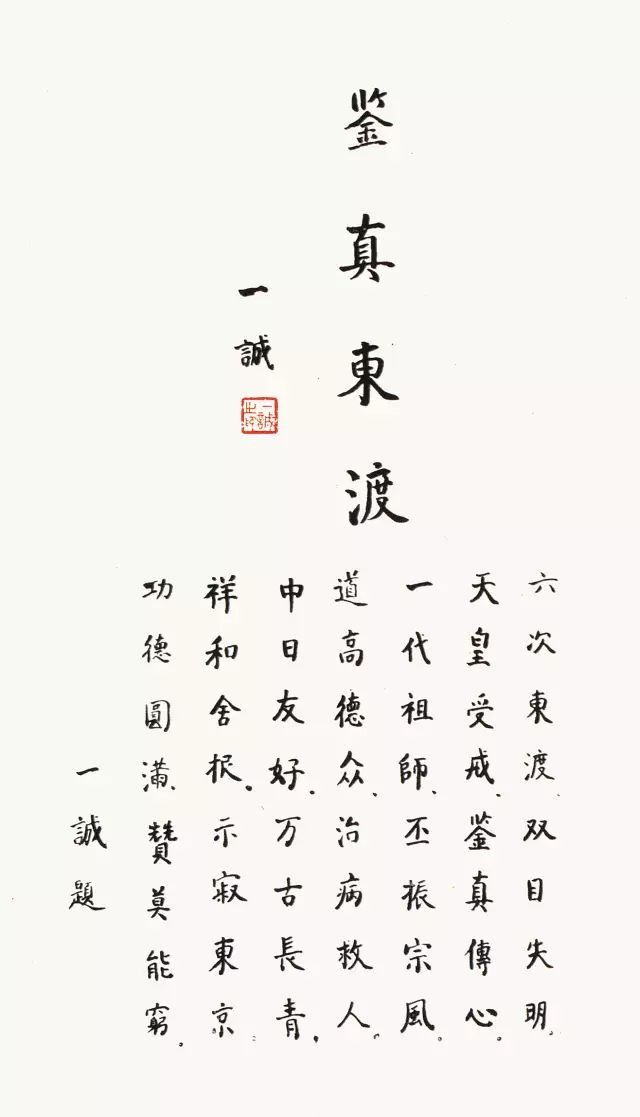 鉴真東渡
一誠
一誠之印
六次東渡、双目失明。
天皇受戒、鉴真傳心。
一代祖師、丕振宗風。
道高德众、治病救人。
中日友好、万古長青。
祥和舍报、示寂東京。
功德圓满、贊莫能窮。
一誠題